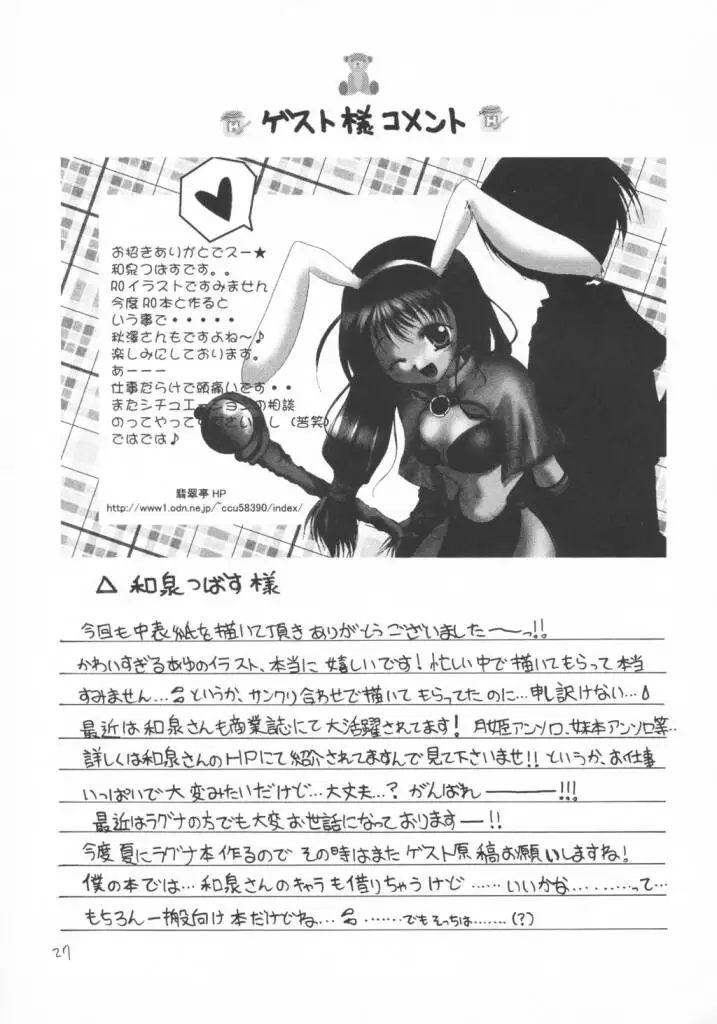 ゲスト様コメント
お招きありがとでスー★
和泉つばすです。。
ROイラストですみません
今度RO本と作ると
いう事で・・・・・
秋澤さんもですよね～♪
楽しみにしております。
あーーー
仕事だらけで頭痛いです・・
またシチュエーションの相談
のってやってくださいまし（苦笑）
ではでは♪
翡翠亭 HP
http://www1.odn.ne.jp/~ccu58390/index/
△ 和泉つばす様
今回も中表紙を描いて頂きありがとうございました――っ!!
かわいすぎるあゆのイラスト、本当に嬉しいです！忙しい中で描いてもらって本当
すみません…というか、サンクリ合わせで描いてもらってたのに…申し訳けない…
最近は和泉さんも商業誌にて大活躍されてます！月姫アンソロ、妹本アンソロ等…
詳しくは和泉さんのHPにて紹介されてますんで見て下さいませ!!というか、お仕事
いっぱいで大変みたいだけど…大丈夫…？がんばれ―――!!!
最近はラグナの方でも大変お世話になっております―!!
今度夏にラグナ本作るのでその時はまたゲスト原稿お願いしますね！
僕の本では…和泉さんのキャラも借りちゃうけど……いいかな………って…
もちろん一般向け本だけどね………でもそっちは……(？)
27